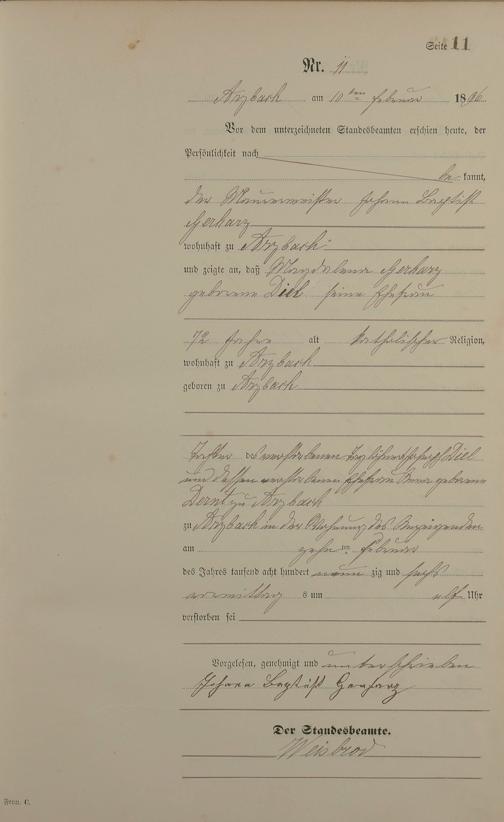 Seite 11
Nr. 11
Arzbach am 10ten Februar 1896
Vor dem unterzeichneten Standesbeamten erschien heute, der
Persönlichkeit nach
be kannt,
der Maurermeister Johann Baptist
Gerharz
wohnhaft zu Arzbach
und zeigte an, daß Magdalena Gerharz
geborene Diel seine Ehefrau
72 Jahre alt katholischer Religion,
wohnhaft zu Arzbach
geboren zu Arzbach
Tochter des verstorbenen Diel
und dessen verstorbenen Ehefrau Anna geborene
zu Arzbach
zu Arzbach in der Wohnung des Anzeigenden
am zehnten Februar
des Jahres tausend acht hundert neun zig und sechs
vormittag s um elf Uhr
verstorben sei
Vorgelesen, genehmigt und unterschrieben
Johann Baptist Gerharz
Der Standesbeamte.
Weisbrod
Form. C.